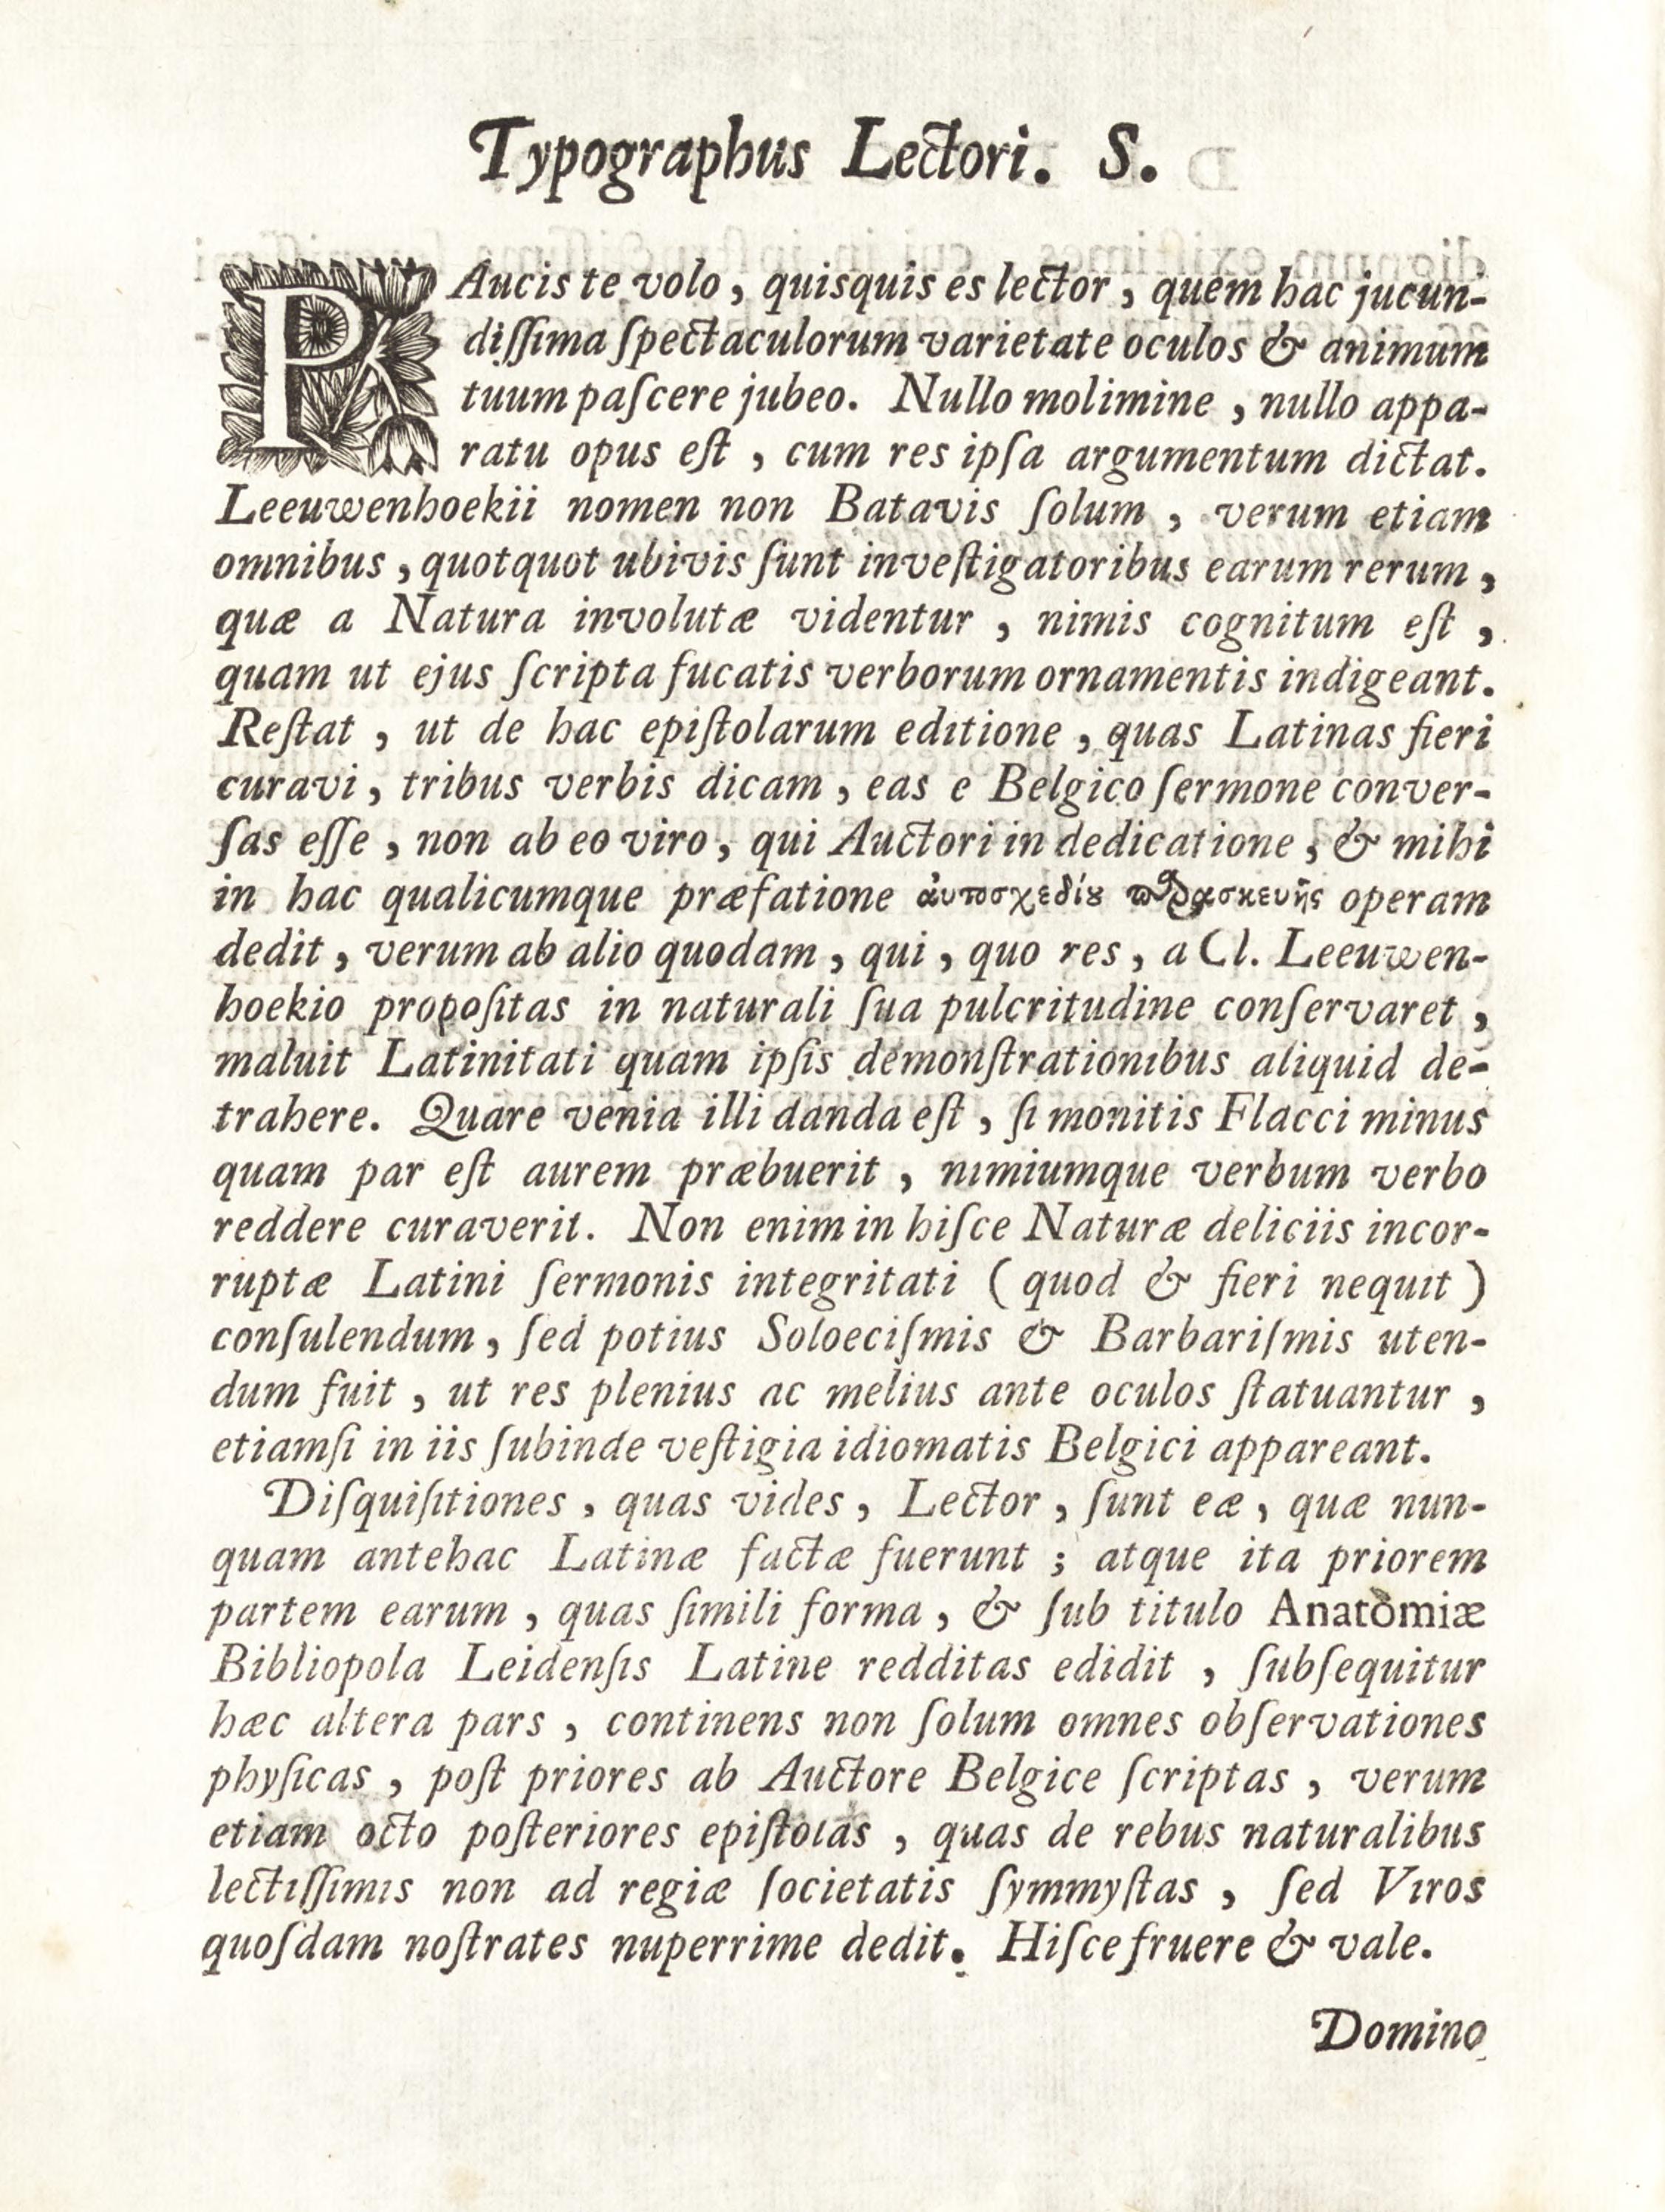 Typographus Lectori. S.
PAucis te volo, quisquis es lector, quem hac jucun-
diſſima ſpectaculorum varietate oculos & animum
tuum paſcere jubeo. Nullo molimine, nullo appa-
ratu opus eſt, cum res ipſa argumentum dictat.
Leeuwenhoekii nomen non Batavis ſolum, verum etiam
omnibus, quotquot ubivis ſunt inveſtigatoribus earum rerum,
quæ a Natura involutæ videntur, nimis cognitum eſt,
quam ut ejus ſcripta fucatis verborum ornamentis indigeant.
Reſtat, ut de hac epiſtolarum editione, quas Latinas fieri
curavi, tribus verbis dicam, eas e Belgico ſermone conver-
ſas eſſe, non ab eo viro, qui Auctori in dedicatione, & mihi
in hac qualicumque præfatione ἀυτοσχεδίȣ παρασκευῆς operam
dedit, verum ab alio quodam, qui, quo res, a Cl. Leeuwen-
hoekio propoſitas in naturali ſua pulcritudine conſervaret,
maluit Latinitati quam ipſis demonſtrationibus aliquid de-
trahere. Quare venia illi danda eſt, ſi monitis Flacci minus
quam par eſt aurem præbuerit, nimiumque verbum verbo
reddere curaverit. Non enim in hiſce Naturæ deliciis incor-
ruptæ Latini ſermonis integritati (quod & fieri nequit)
conſulendum, ſed potius Soloeciſmis & Barbariſmis uten-
dum fuit, ut res plenius ac melius ante oculos ſtatuantur,
etiamſi in iis ſubinde veſtigia idiomatis Belgici appareant.
Diſquiſitiones, quas vides, Lector, ſunt eæ, quæ nun-
quam antehac Latinæ factæ fuerunt; atque ita priorem
partem earum, quas ſimili forma, & ſub titulo Anatomiæ
Bibliopola Leidenſis Latine redditas edidit, ſubſequitur
hæc altera pars, continens non ſolum omnes obſervationes
phyſicas, poſt priores ab Auctore Belgice ſcriptas, verum
etiam octo poſteriores epiſtolas, quas de rebus naturalibus
lectiſſimis non ad regiæ ſocietatis ſymmyſtas, ſed Viros
quoſdam noſtrates nuperrime dedit. Hiſce fruere & vale.
Domino